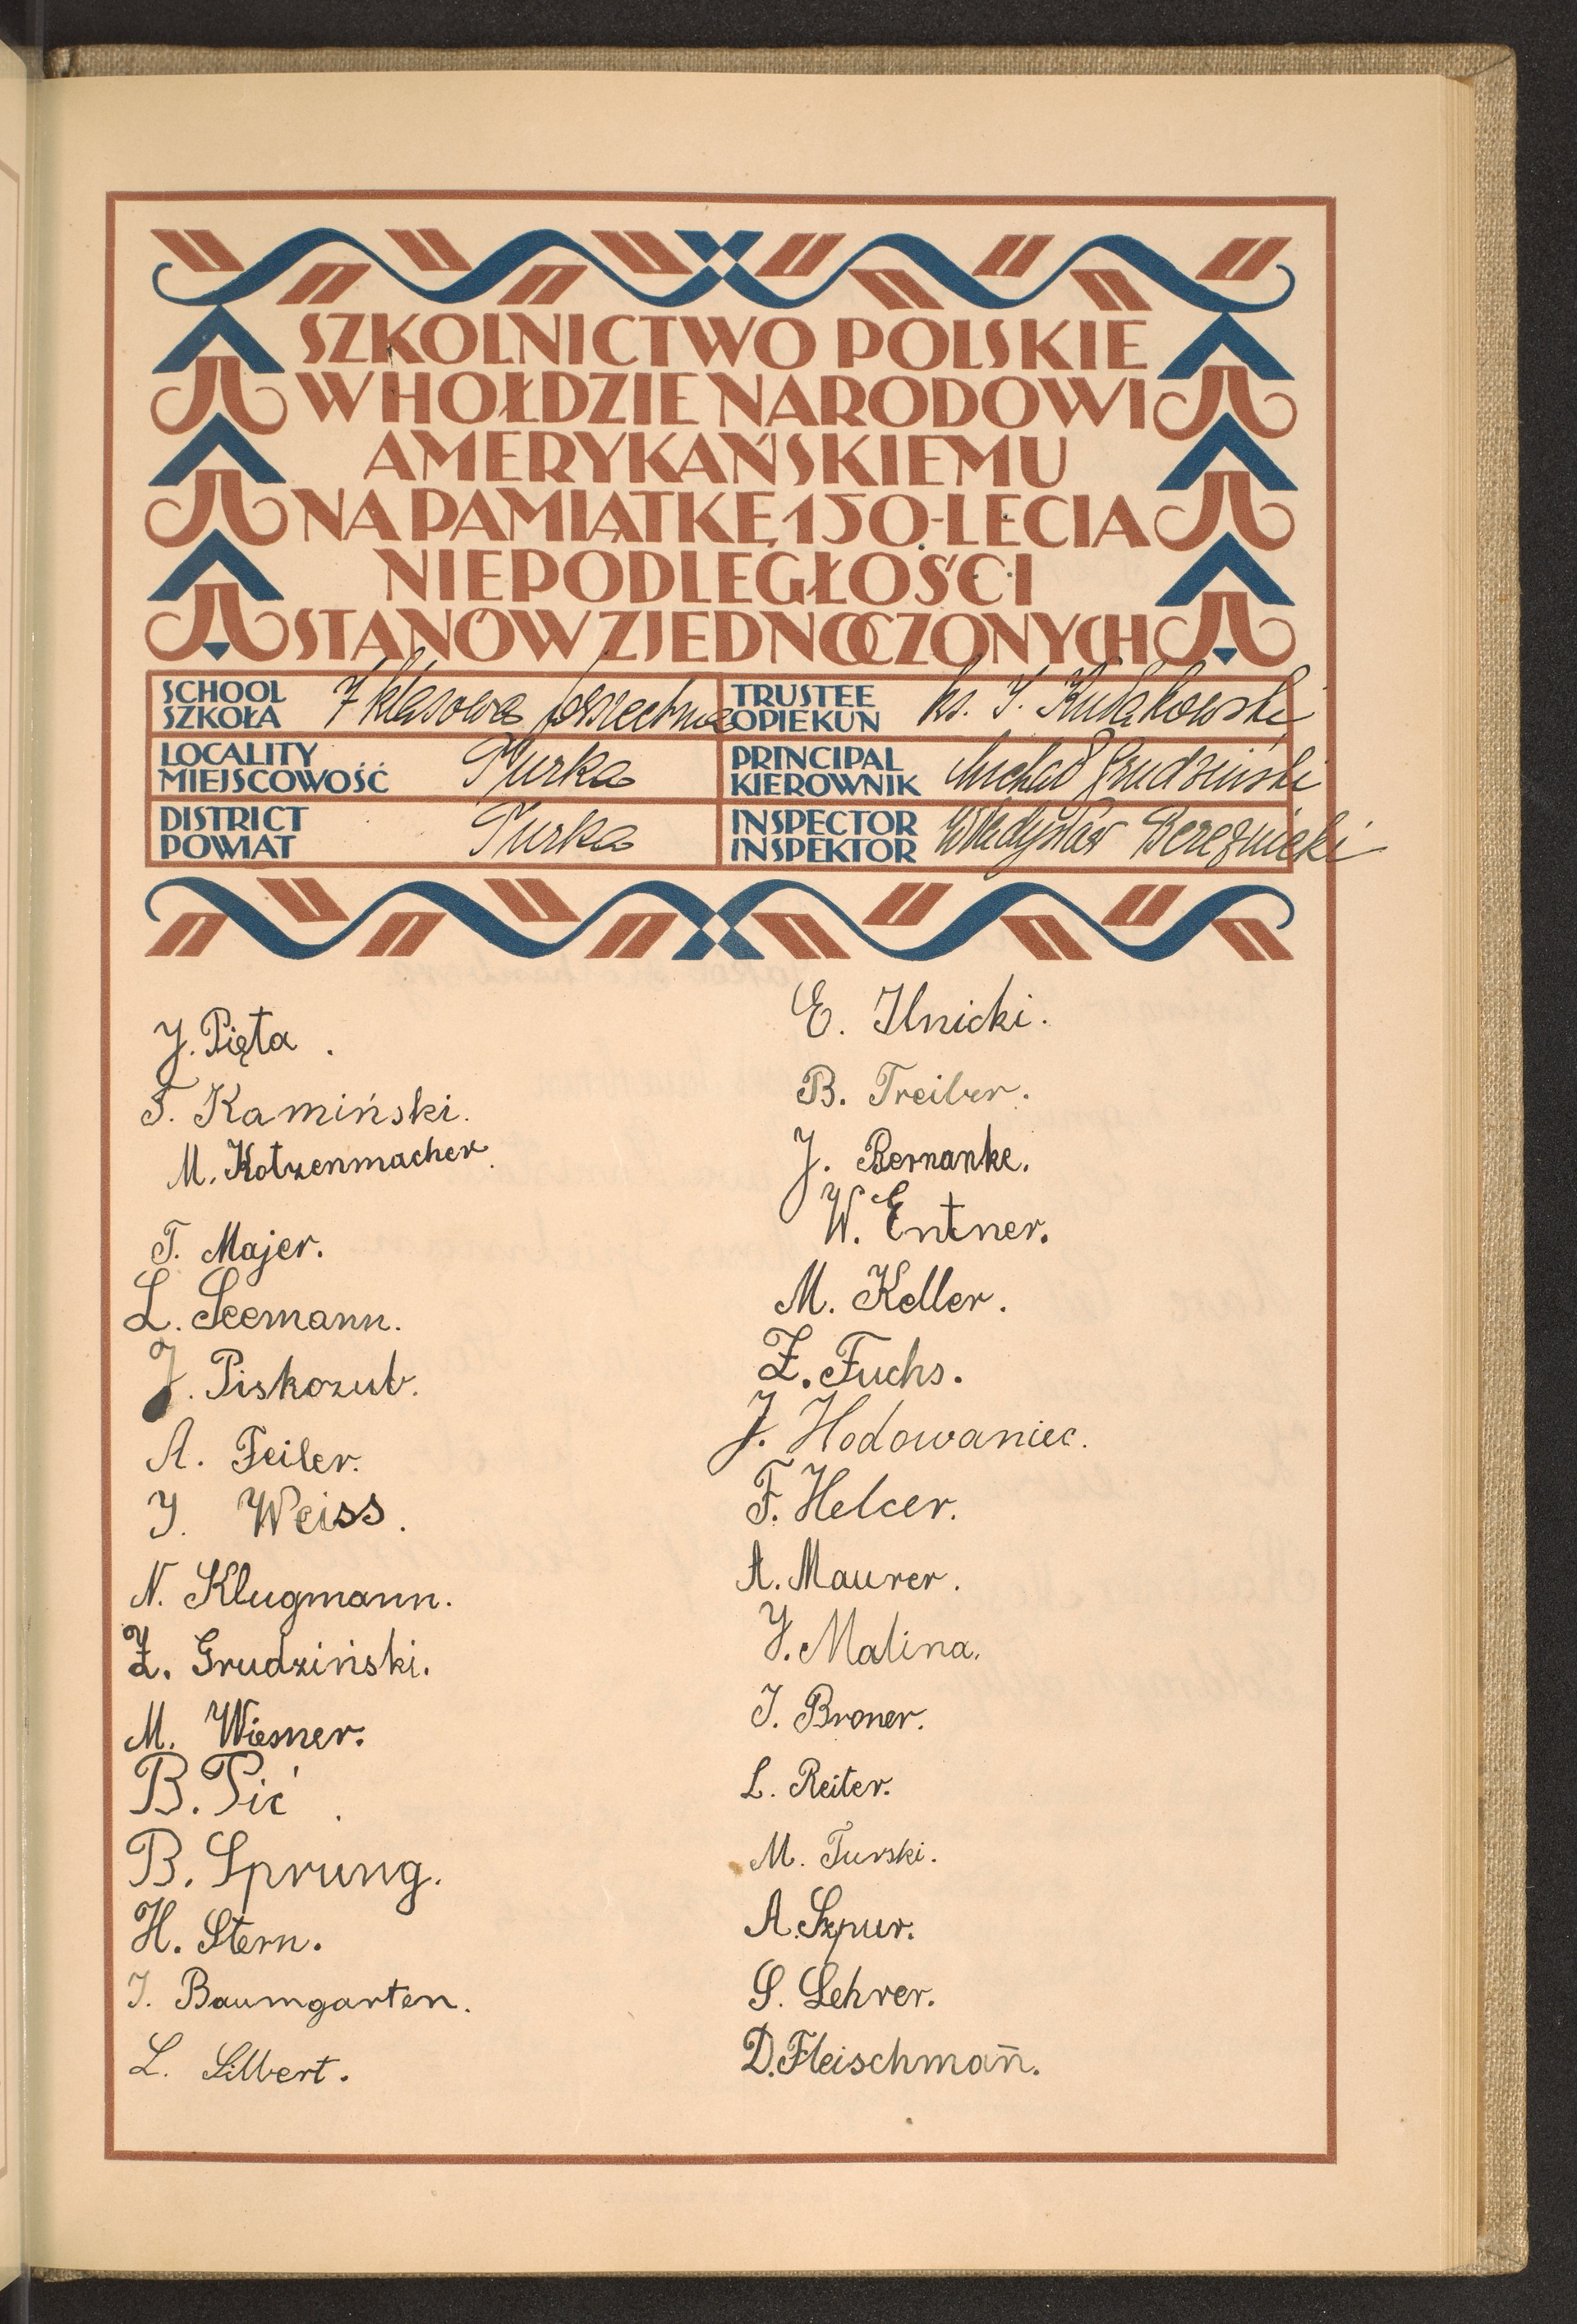 SZKOLNICTWO POLSKIE
W HOŁDZIE NARODOWI
AMERYKAŃSKIEMU
NA PAMIĄTKĘ 150-LECIA
NIEPODLEGŁOŚCI
STANÓW ZJEDNOCZONYCH
SCHOOL
SZKOŁA
7 klasowa powszechna
TRUSTEE
OPIEKUN
ks. J. Kułakowski
LOCALITY
MIEJSCOWOŚĆ
Turka
PRINCIPAL
KIEROWNIK
Michał Grudziński
DISTRICT
POWIAT
Turka
INSPECTOR
INSPEKTOR
Władysław Bereźnicki
J. Pięta.
T. Kamiński.
M. Kotzenmacher.
T. Majer.
L. Seemann.
J. Piskozub.
A. Feiler.
J. Weiss.
N. Klugmann.
Z. Grudziński.
M. Wiesner.
B. Pić.
B. Sprung.
H. Stern.
J. Baumgarten.
L. Silbert.
E. Ilnicki.
B. Treiber.
J. Bernanke.
W. Entner.
M. Keller.
Z. Fuchs.
J. Hodowaniec.
F. Helcer.
A. Maurer.
J. Malina.
J. Broner.
L. Reiter.
M. Turski.
A. Szpur.
S. Lehrer.
D. Fleischman̄.